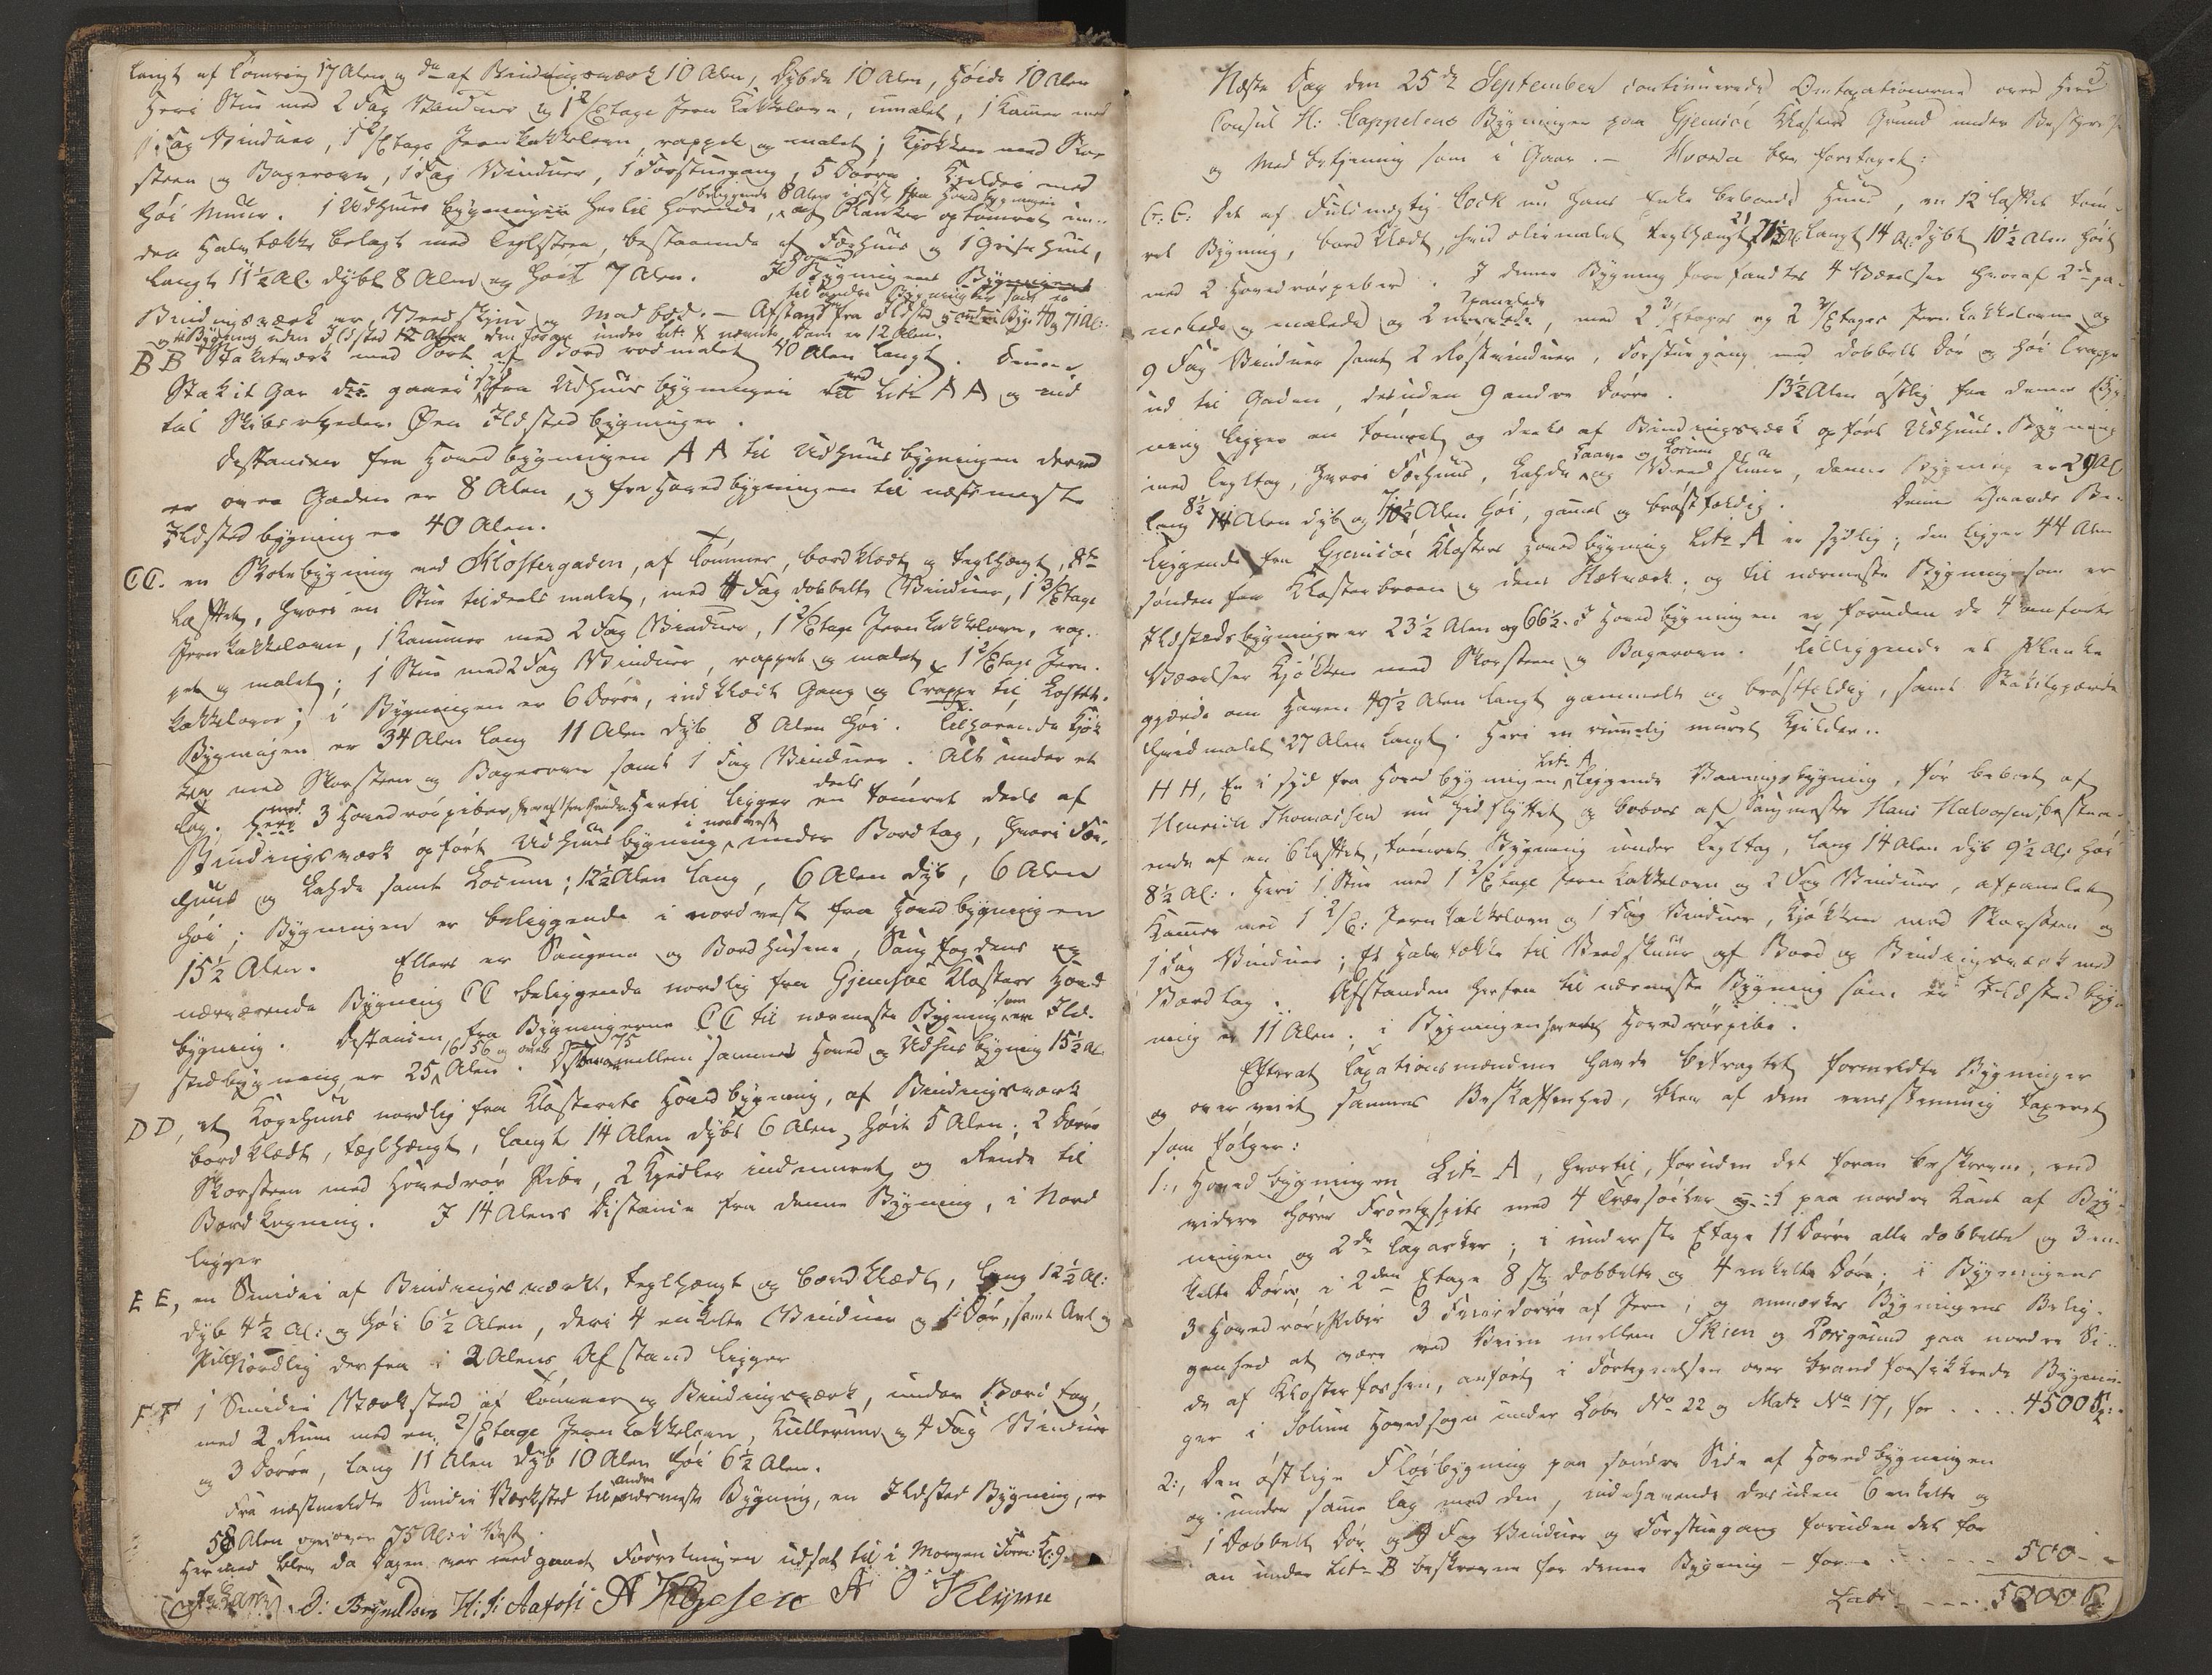 langt af Tømring 17 Alen og do af Bindingsværk 10 Alen, Dybde 10 Alen, Høide 10 Alen
Heri Stue med 2 Fag Vinduer og 1 2/Etage Jern Kakkelovn, umalet, 1 Kamer med
1 Fag Vinduer, 1 2/Etage Jernkakkelovn, rappet og malet; Kjøkken med Skor
steen og Bagerovn, 1 Fag Vinduer, 1 Forstuegang, 5 Dørre; Kjelder med
høi Muur. 1 Udhuus bygningen hertil hørende, beliggende 8 Alen i øst fra Hovedbygningen af Planker optømret un-
der Halvtække belagt med Teglsteen, bestaaende af Fæehuus og 1 Grisehuus,
langt 11½ Al. dybt 8 Alen og høit 7 Alen. I Bygningens
Bindingsværk er Vedskjul og Madbod. – Afstand fra Ildsted
til andre Bygninger samt
og til Bygning uden Ildsted den forrige under Lit: X nævnte Dam er 12 Alen.
BB Stakitværk med Port af Bord rødmalet 40 Alen langt. Denne
Stakit Gar der gaaer i syd fra Udhuus bygningen ved Litr AA og ned
til Skibsrheden. Øen Ildsted bygninger.
Distansen fra Hovedbygningen AA til Udhuusbygningen derved
er over Gaden er 8 Alen, og fra Hovedbygningen til næstmeste
Ildsted bygning er 40 Alen.
CC. en Skolebygning ved Klostergaden, af Tømmer, bordklædt og teglhængt, 8te
laftet, hvori en Stue tildeels malet, med 4 Fag dobbelte Vinduer, 1 3/Etage
Jernkakkelovn, 1 Kammer med 2 Fag Vinduer, 1 2/Etage Jernkakkelovn, rap-
pet og malet; 1 Stue med 2 Fag Vinduer, rappet og malet, 1 2/Etage Jern-
kakkelovn; i Bygningen er 6 Dørre, indklædt Gang og Trappe til Loftet.
Bygningen er 34 Alen lang 11 Alen dyb 8 Alen høi. Tilhørende Kjøk
ken med Skorsteen og Bagerovn samt 1 Fag Vinduer. Alt under et
Tag. med 3 Hovedrørpiber, Hertil ligger en deels tømret deels af
Bindingsværk opført Udhuusbygning i nordvest under Bordtag, hvori Fæe-
huus og Lahde samt Locum; 12½ Alen lang, 6 Alen dyb, 6 Alen
høi; Bygningen er beliggende i nordvest fra Hovedbygningen
15½ Alen. Ellers er Saugene og Bordhusene, Saugfogdens og
nærværende Bygning CC beliggende nordlig fra Gjemsøe Klosters Hoved
bygning. Distancen fra Bygningerne CC til nærmeste Bygning som er Ild-
sted bygning, er 25 16 56 og 75 Alen. mellem sammes Hoved og Udhus bygning 15½ Al.
DD, et Kogehuus nordlig fra Klosterets Hovedbygning, af Bindingsværk
bordklædt, teglhængt, langt 14 Alen dybt 6 Alen, høit 5 Alen; 2 Dørre
Skorsteen med Hovedrør Pibe, 2 Kjedler indmuret og Rende til
Bordkogning. I 14 Alens Distance fra denne Bygning, i Nord
ligger
EE, en Smidie af Bindingsværk, teglhængt og bordklædt, lang 12½ Al:
dyb 4½ Al: og høi 6½ Alen, deri 4 enkelte Vinduer og 1 Dør, samt Avl og
Pibe, Nordlig derfra i 2 Alens Afstand ligger
FF 1 Smidie Værksted af Tømmer og Bindingsværk, under Bord tag,
med 2 Rum med en 2/Etage Jernkakkelovn, Kullerum og 4 Fag Vinduer
og 3 Dørre, lang 11 Alen dyb 10 Alen høi 6½ Alen.
Fra næstmeldte Smidie Værksted til anden nærmeste Bygning, en Ildsted Bygning, er
58 Alen og 75 Al: i Vest.
Hermed blev da Dagen var medgaaet Forretningen udsat til i Morgen Form: Kl: 9.
O: Brynildsen H: J: Aafoss A Helgesen A O Klyve
5
Næste Dag den 25de September continueredes Omtaxationerne over Herr
Consul H: Cappelens Bygninger paa Gjemsøe Klosters Grund under Bestyrelse
og Med betjening som i Gaar. – Hvorda blev foretaget:
G:G: Det af Fuldmægtig Bock nu hans Enke beboede Huus, en 12 laftet tøm-
ret Bygning, bordklædt, hvid oliemalet teglhængt, 21 Al: langt 14 Al: dybt 10½ Alen høit
med 2 Hovedrørpiber. I denne Bygning forefandtes 4 Værelser hvoraf 2de pa-
nelede og malede og 2 panelede, med 2 3/Etages og 2 2/Etages Jernkakkelovne og
9 Fag Vinduer samt 2 Røstvinduer, Forstuegang med dobbelt Dør og høi Trappe
ud til Gaden, desuden 9 andre Dørre. 13½ Alen østlig fra denne Byg-
ning ligger en tømret og deels af Bindingsværk opført Udhuus-Bygning
med Tegltag, hvori Fæehuus, Lahde, Laave og Locum og Vedskuur, denne Bygning er 29 Al
lang 8½ Alen dyb og 7½ Alen høi, gamel og brøstfældig. Denne Gaards Be-
liggende fra Gjemsøe Klosters Hovedbygning Litr A er sydlig; den ligger 44 Alen
sønden fra Klosterbroen og dens Rekværk; og til nærmeste Bygning som er
Ildstedsbygninger er 23½ Alen og 66½. I Hovedbygningen er foruden de 4 anførte
Værelser Kjøkken med Skorsteen og Bagerovn. Tilliggende et Planke
gjærde om Haven 49½ Alen langt gammelt og brøstfældig, samt Stakitgjærde
hvidmalet 27 Alen langt. Heri en rummelig muret Kjelder.
HH, En i syd fra Hovedbygningen Litr A liggende Vaaningsbygning, før beboet af
Henrich Thomassen nu hidflyttet og beboes af Saugmester Hans Halvorsen, bestaa-
ende af en 6 laftet, tømret Bygning under Tegltag, lang 14 Alen dyb 9½ Al: høi
8½ Al: Heri 1 Stue med 1 2/Etage Jernkakkelovn og 2 Fag Vinduer, afpanelet
Kamer med 1 2/E: Jernkakkelovn og 1 Fag Vinduer, Kjøkken med Skorsteen og
1 Fag Vinduer; Et Halvtække til Vedskuur af Bord og Bindingsværk med
Bordtag. Afstanden herfra til nærmeste Bygning som er Ildsted byg-
ning er 11 Alen. i Bygningen Hovedrørpibe.
Efterat Taxationsmændene havde betragtet formeldte Bygninger
og overveiet sammes Beskaffenhed, blev af dem eenstemmig taxeret
som følger:
1:, Hovedbygningen Litr A, hvortil, foruden det foran beskrevne, end
videre hører Frontspits med 4 Træsøiler paa nordre Kant af Byg-
ningen og 2de Tagarker; i underste Etage 11 Dørre alle dobbelte og 3 en-
kelte Dørre, i 2den Etage 8 stk dobbelte og 4 enkelte Døre; i Bygningens
3 Hovedrørpiber 3 Fuirdørre af Jern; og anmærkes Bygningens Belig-
genhed at være ved Veien mellem Skien og Porsgrund paa nordre Si-
de af Klosterfossen, anført i Fortegnelsen over brandforsikkrede Bygnin-
ger i Solum Hovedsogn under Løbe No 22 og Matr No 17, for . . . . 4500 Sp:
2:, Den østlige Fløibygning paa søndre Side af Hovedbygningen
og under same Tag med den, indehavende desuden 6 enkelte og
1 Dobbelt Dør og 9 Fag Vinduer og Forstuegang foruden det for
an under Litr B beskrevne for denne Bygning – for . . . . . . 500 –
Lat: . . . . . 5000 Sp: